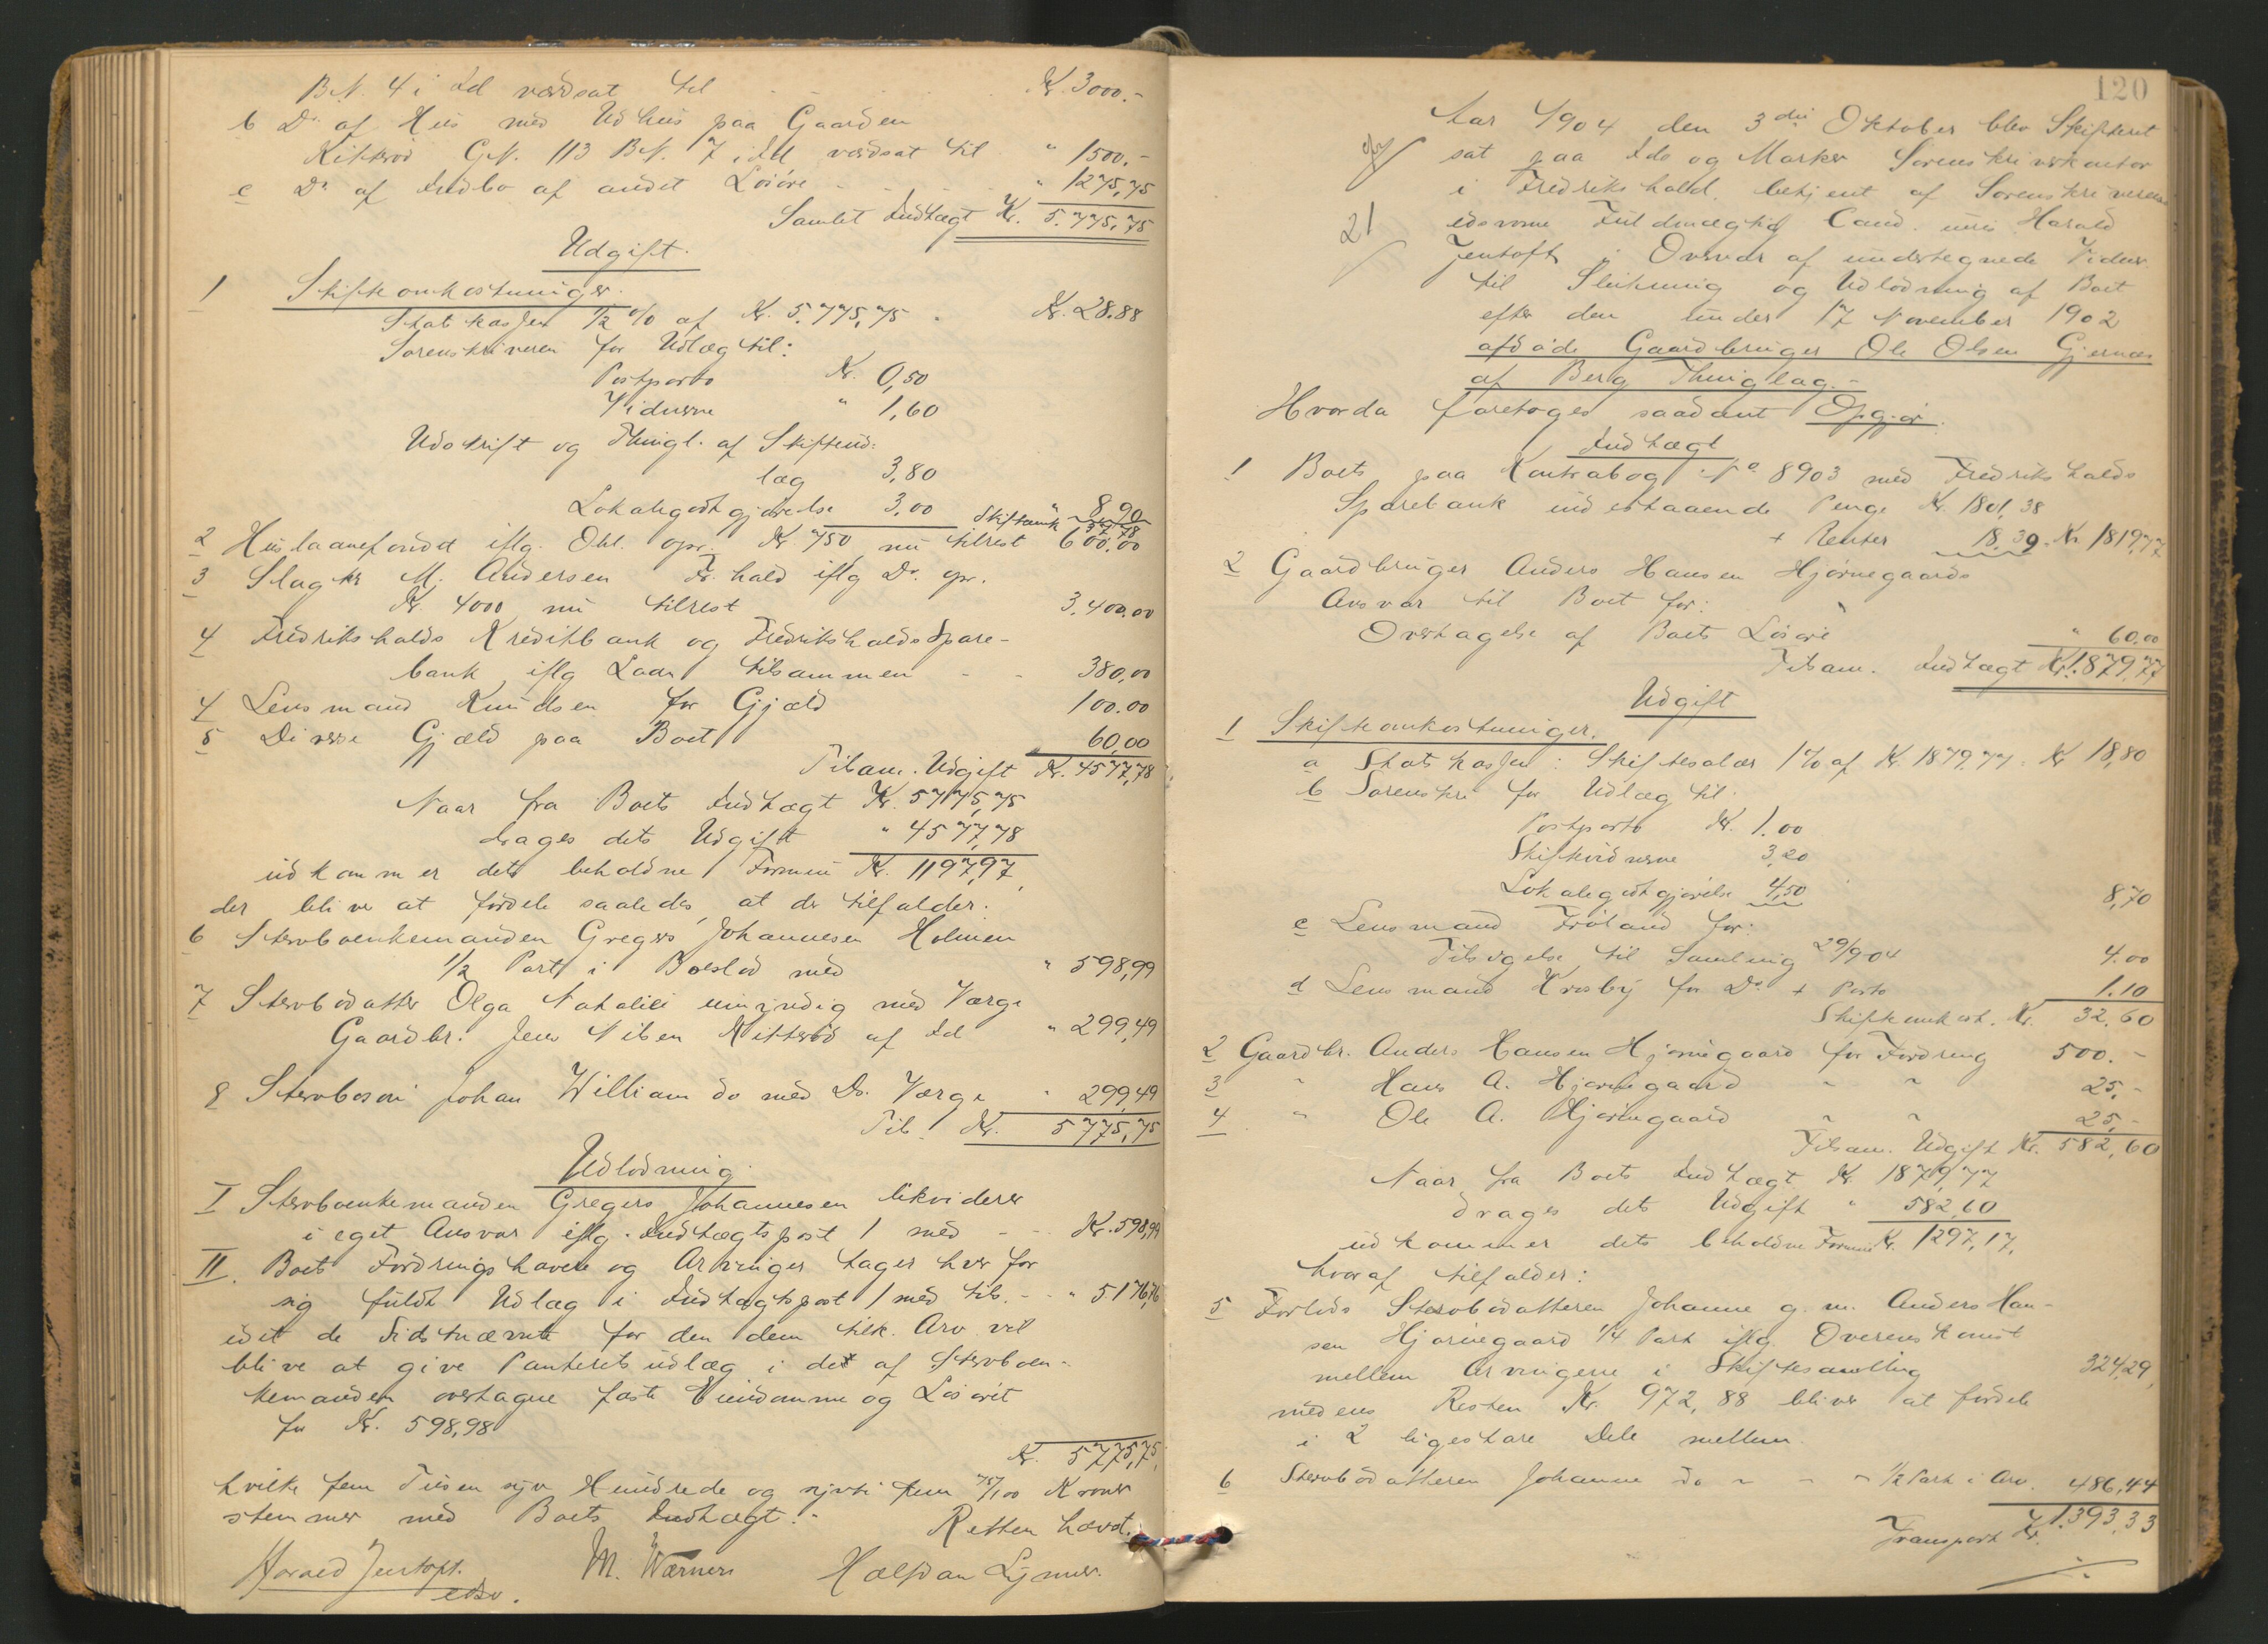 B.N. 4 i Id værdsat til Kr. 3000.-
b Do af Hus med Udhus paa Gaarden
Kitterød G.N. 113 B.N. 7 i Id værdsat til " 1500.-
c Do af Indbo af andet Løsøre " 1275,75
Samlet Indtægt Kr. 5.775,75
Udgift.
1 Skifteomkostninger.
Statskassen 1/2 % af Kr. 5.775,75 Kr. 28.88
Sorenskriveren for Udlæg til:
Postporto Kr. 0,50
Vidnerne " 1,60
Udskrift og Thingl. af Skifteud:
læg 3,80
Lokalegodtgjørelse 3,00 " 8,90
Skifteomk 37,78
2 Huslaanefondet iflg. Obl. opr. Kr. 750 nu tilrest 600,00
3 Slagter M. Andersen Fr.hald iflg Do. opr.
Kr. 4000 nu tilrest 3,400.00
4 Fredrikshalds Kreditbank og Fredrikshalds Spare-
bank iflg Laan tilsammen - - 380,00
4 Lensmand Knudsen for Gjæld 100.00
5 Diverse Gjæld paa Boet 60,00
Tilsam. Udgift Kr. 4577,78
Naar fra Boets Indtægt Kr. 5775,75
drages dets Udgift " 4577,78
udkommer dets beholdne Formue Kr. 1197,97,
der blive at fordele saaledes, at der tilfalder:
6 Stervboenkemanden Gregers Johannesen Holmen
1/2 Part i Boeslod med " 598,99
7 Stervbodatter Olga Nathalie umyndig med Værge
Gaardbr. Jens Nilsen Kitterød af Id " 299,49
8 Stervboson Johan William do med Do. Værge " 299,49
Tils. Kr. 5775,75
Udlodning.
I Stervboenkemanden Gregers Johannesen likviderer
i eget Ansvar iflg. Indtægtspost 1 med - - Kr. 598,99
II. Boets Fordringshavere og Arvinger tager hver for
sig fuldt Udlæg i Indtægtspost 1 med tils. - - " 5176,76
idet de Sidstnævnte for den dem tilk. Arv vil
blive at give Panteretsudlæg i det af Stervboen-
kemanden overtagne faste Eiendomme og Løsøret
for Kr. 598,98
Kr. 5775,75,
hvilke fem Tusen syv Hundrede og sytti fem 75/100 Kroner
stemmer med Boets Indtægt.-
Retten hævet.
Harald Jentoft. M. Werners Halfdan
edsv.
120
Aar 1904 den 3die Oktober blev Skifteret
sat paa Idd og Marker Sorenskriverkontor
i Fredrikshald, betjent af Sorenskriverens
21 edsvorne Fuldmægtig Cand. juris Harald
Jentoft i Overvær af undertegnede Vidner
til Slutning og Udlodning af Boet
efter den under 17 November 1902
afdøde Gaardbruger Ole Olsen Gjernæs
af Berg Thinglag.-
Hvorda foretoges saadant Opgjør.
Indtægt
1 Boets paa Kontrabog No 8903 med Fredrikshalds
Sparebank indestaaende Penge Kr. 1801,38
+ Renter 18,39 Kr. 1819,77
2 Gaardbruger Anders Hansen Hjørnegaards
Ansvar til Boet for:
Overtagelse af Boets Løsøre " 60.00
Tilsam. Indtægt Kr. 1.879,77
Udgift
1 Skifteomkostninger.
a Statskassen: Skiftesalær 1% af Kr. 1879,77. Kr 18,80
b Sorenskr for Udlæg til
Postporto Kr. 1.00
Skiftevidnerne 3,20
Lokalegodtgjørelse 4,50 8,70
c Lensmand Frøland for:
Tilsigelse til Samling 29/9 04 4.00
d Lensmand Krosby for Do + Porto 1.10
Skifteomkost. Kr. 32,60
2 Gaardbr. Anders Hansen Hjørnegaard for Fordring 500.-
3 " Hans A. Hjørnegaard " " 25,-
4 " Ole A. Hjørnegaard " " 25,-
Tilsam. Udgift Kr. 582,60
Naar fra Boets Indtægt Kr 1879,77
drages dets Udgift " 582,60
udkommer dets beholdne Formue Kr. 1297,17,
hvoraf tilfalder:
5 Forlods Stervbodatteren Johanne g. m. Anders Han-
sen Hjørnegaard 1/4 Part iflg. Overenskomst
mellem Arvingerne i Skiftesamling 324,29,
medens Resten Kr. 972,88 bliver at fordele
i 2 ligestore Dele mellem
6 Stervbodatteren Johanne do " " " 1/2 Part i Arv. 486,44
Transport Kr. 1.393,33